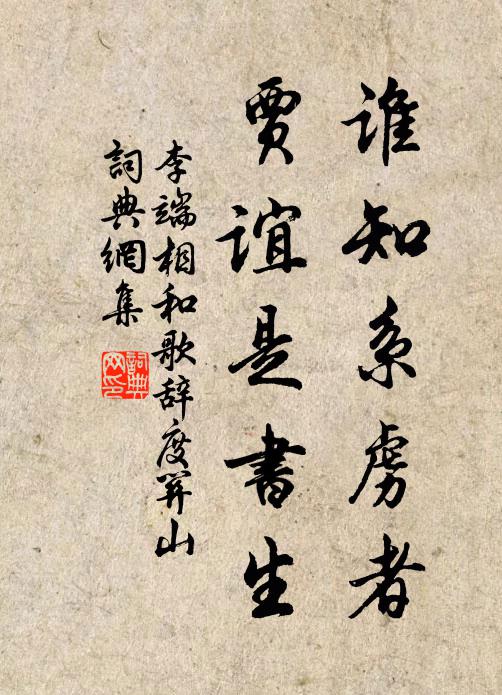 誰知系虜者
賈誼是書生
李端相和歌辞度関山
詞典網集
詞典网印